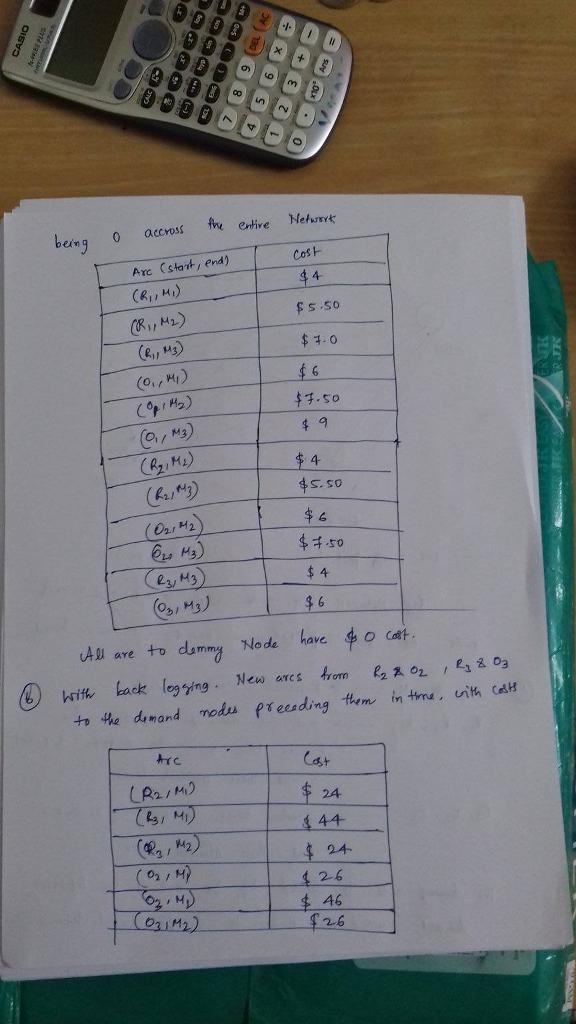 CASIO
DEL AC
7 8 9
4 5 6 × ÷
1 2 3 + -
0 . x10ˣ Ans =
being 0 accross the entire Network
Arc (start, end) Cost
(R1, M1) $4
(R1, M2) $5.50
(R1, M3) $7.0
(O1, M1) $6
(O1, M2) $7.50
(O1, M3) $9
(R2, M2) $4
(R2, M3) $5.50
(O2, M2) $6
(O2, M3) $7.50
(R3, M3) $4
(O3, M3) $6
All arc to dommy Node have $0 cost.
(b) With back logging. New arcs from R2 & O2, R3 & O3
to the demand nodes preceding them in time, with costs
Arc Cost
(R2, M1) $24
(R3, M1) $44
(R3, M2) $24
(O2, M1) $26
(O3, M1) $46
(O3, M2) $26